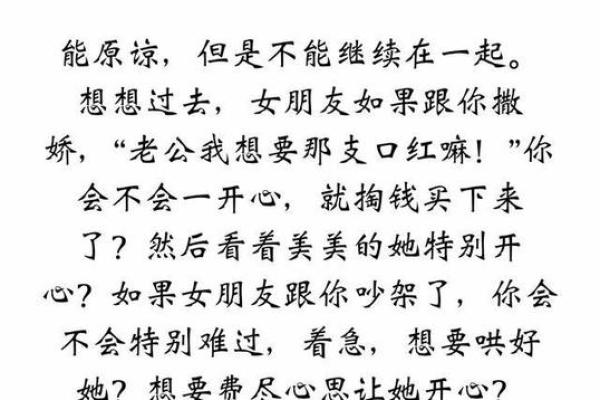 能原谅，但是不能继续在一起。
想想过去，女朋友如果跟你撒
娇，“老公我想要那支口红嘛！”你
会不会一开心，就掏钱买下来
了？然后看着美美的她特别开
心？如果女朋友跟你吵架了，你会
不会特别难过，着急，想要哄好
她？想要费尽心思让她开心？